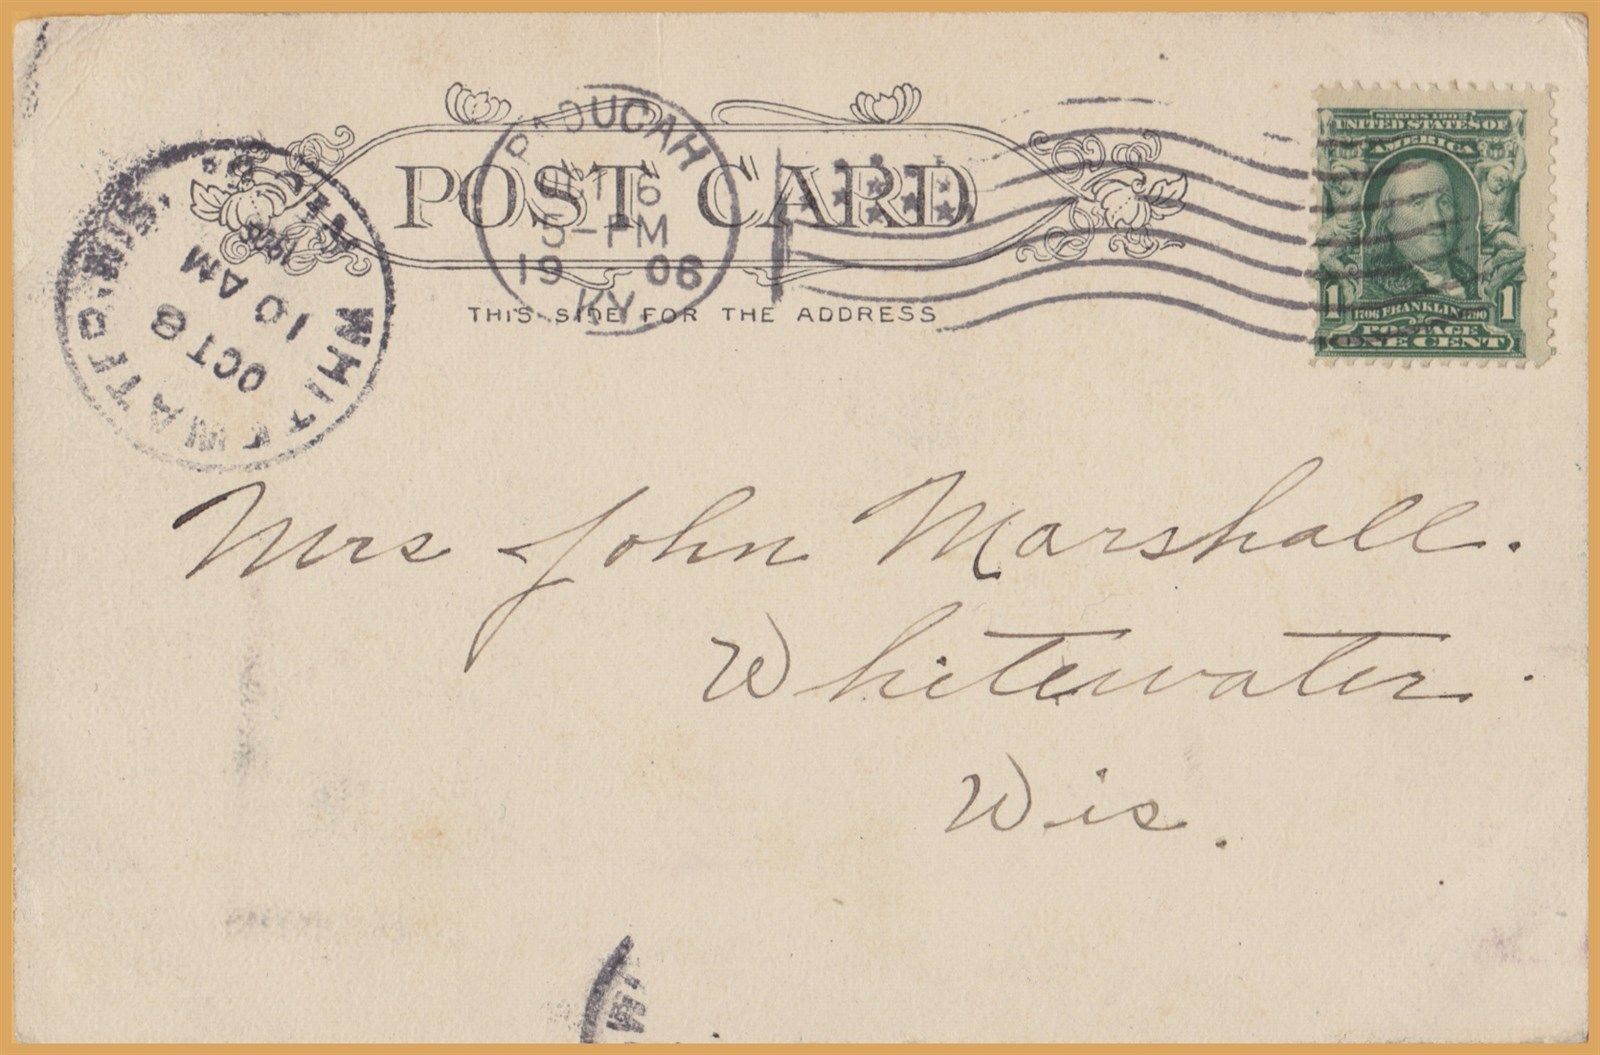 POST CARD
THIS SIDE FOR THE ADDRESS
PADUCAH
OCT 6
5-PM
1906
KY
WHITEWATER, WIS.
OCT 8
10 AM
SERIES 1902
UNITED STATES OF
AMERICA
1 1
1706 FRANKLIN 1790
POSTAGE
ONE CENT
Mrs John Marshall.
Whitewater.
Wis.